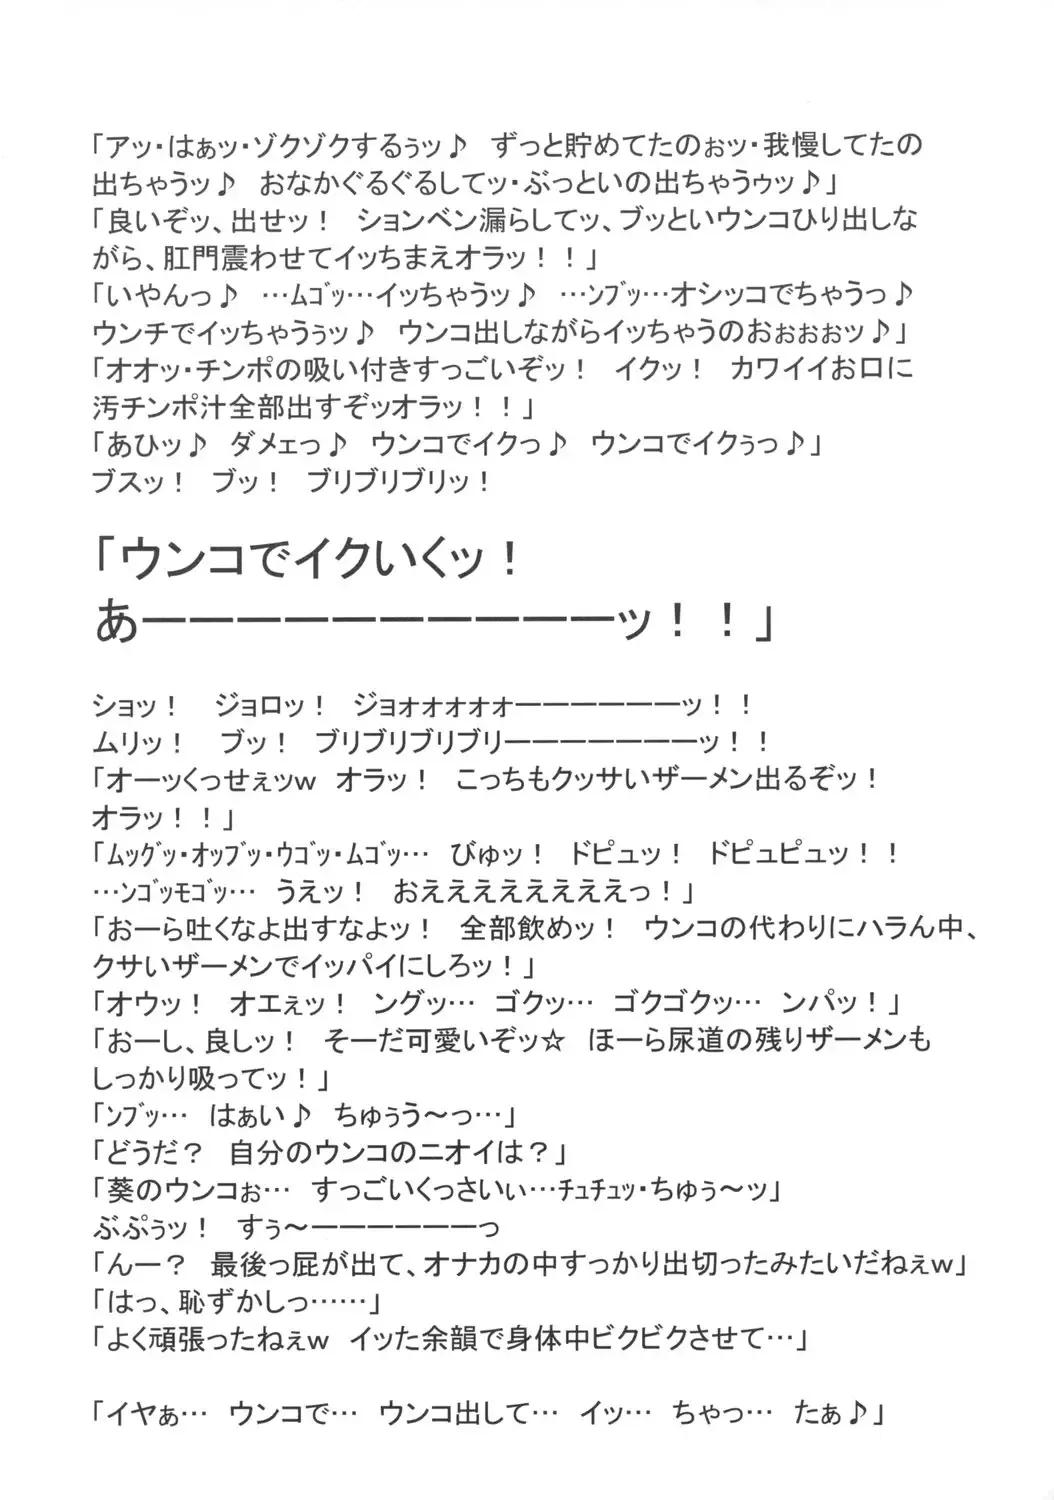 「アッ・はぁッ・ゾクゾクするぅッ♪　ずっと貯めてたのぉッ・我慢してたの
出ちゃうッ♪　おなかぐるぐるしてッ・ぶっといの出ちゃうゥッ♪」
「良いぞッ、出せッ！　ションベン漏らしてッ、ブッといウンコひり出しな
がら、肛門震わせてイッちまえオラッ！！」
「いやんっ♪　…ﾑｺﾞｯ…イッちゃうッ♪　…ﾝﾌﾞｯ…オシッコでちゃうっ♪
ウンチでイッちゃうぅッ♪　ウンコ出しながらイッちゃうのおぉぉぉッ♪」
「オオッ・チンポの吸い付きすっごいぞッ！　イクッ！　カワイイお口に
汚チンポ汁全部出すぞッオラッ！！」
「あひッ♪　ダメェっ♪　ウンコでイクっ♪　ウンコでイクぅっ♪」
ブスッ！　ブッ！　ブリブリブリッ！
「ウンコでイクいくッ！
あーーーーーーーーーーッ！！」
ショッ！　ジョロッ！　ジョォォォォォーーーーーーッ！！
ムリッ！　ブッ！　ブリブリブリブリーーーーーーーッ！！
「オーッくっせぇッｗ　オラッ！　こっちもクッサいザーメン出るぞッ！
オラッ！！」
「ﾑｯｸﾞｯ・ｵｯﾌﾞｯ・ｳｺﾞｯ・ﾑｺﾞｯ…　びゅッ！　ドピュッ！　ドピュピュッ！！
…ﾝｺﾞｯﾓｺﾞｯ…　うえッ！　おええええええええっ！」
「おーら吐くなよ出すなよッ！　全部飲めッ！　ウンコの代わりにハラん中、
クサいザーメンでイッパイにしろッ！」
「オウッ！　オエぇッ！　ングッ…　ゴクッ…　ゴクゴクッ…　ンパッ！」
「おーし、良しッ！　そーだ可愛いぞッ☆　ほーら尿道の残りザーメンも
しっかり吸ってッ！」
「ﾝﾌﾞｯ…　はぁい♪　ちゅぅう～っ…」
「どうだ？　自分のウンコのニオイは？」
「葵のウンコぉ…　すっごいくっさいぃ…ﾁｭﾁｭｯ・ちゅぅ～ッ」
ぶぷぅッ！　すぅ～ーーーーーーっ
「んー？　最後っ屁が出て、オナカの中すっかり出切ったみたいだねぇｗ」
「はっ、恥ずかしっ……」
「よく頑張ったねぇｗ　イッた余韻で身体中ビクビクさせて…」
「イヤぁ…　ウンコで…　ウンコ出して…　イッ…　ちゃっ…　たぁ♪」